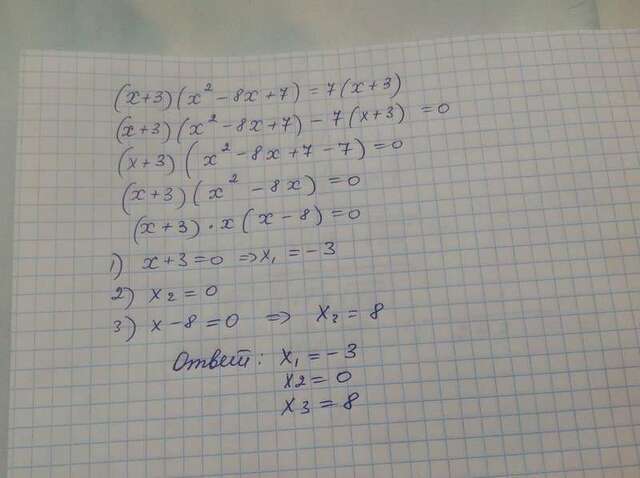 (x+3)(x² - 8x + 7) = 7(x+3)
(x+3)(x² - 8x + 7) - 7(x+3) = 0
(x+3)(x² - 8x + 7 - 7) = 0
(x+3)(x² - 8x) = 0
(x+3) · x(x - 8) = 0
1) x + 3 = 0 ⇒ x₁ = -3
2) x₂ = 0
3) x - 8 = 0 ⇒ x₂ = 8
Ответ: x₁ = -3
x2 = 0
x3 = 8